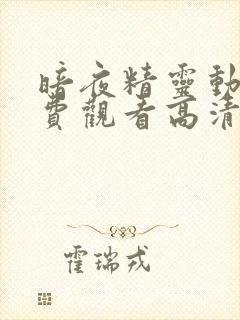 暗夜精靈動
費觀看高清
霍瑞戎